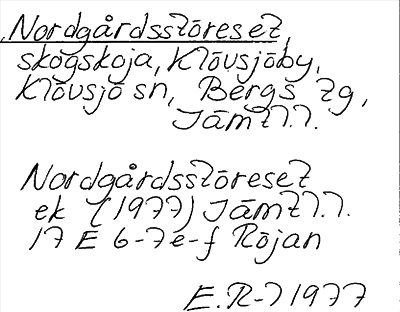 Nordgårdsstöreset,
skogskoja, Klövsjöby,
Klövsjö sn, Bergs tg,
Jämtl.l.
Nordgårdsstöreset
ek (1977) Jämtl.l.
17 E 6-7e-f Röjan
E.R-7 1977